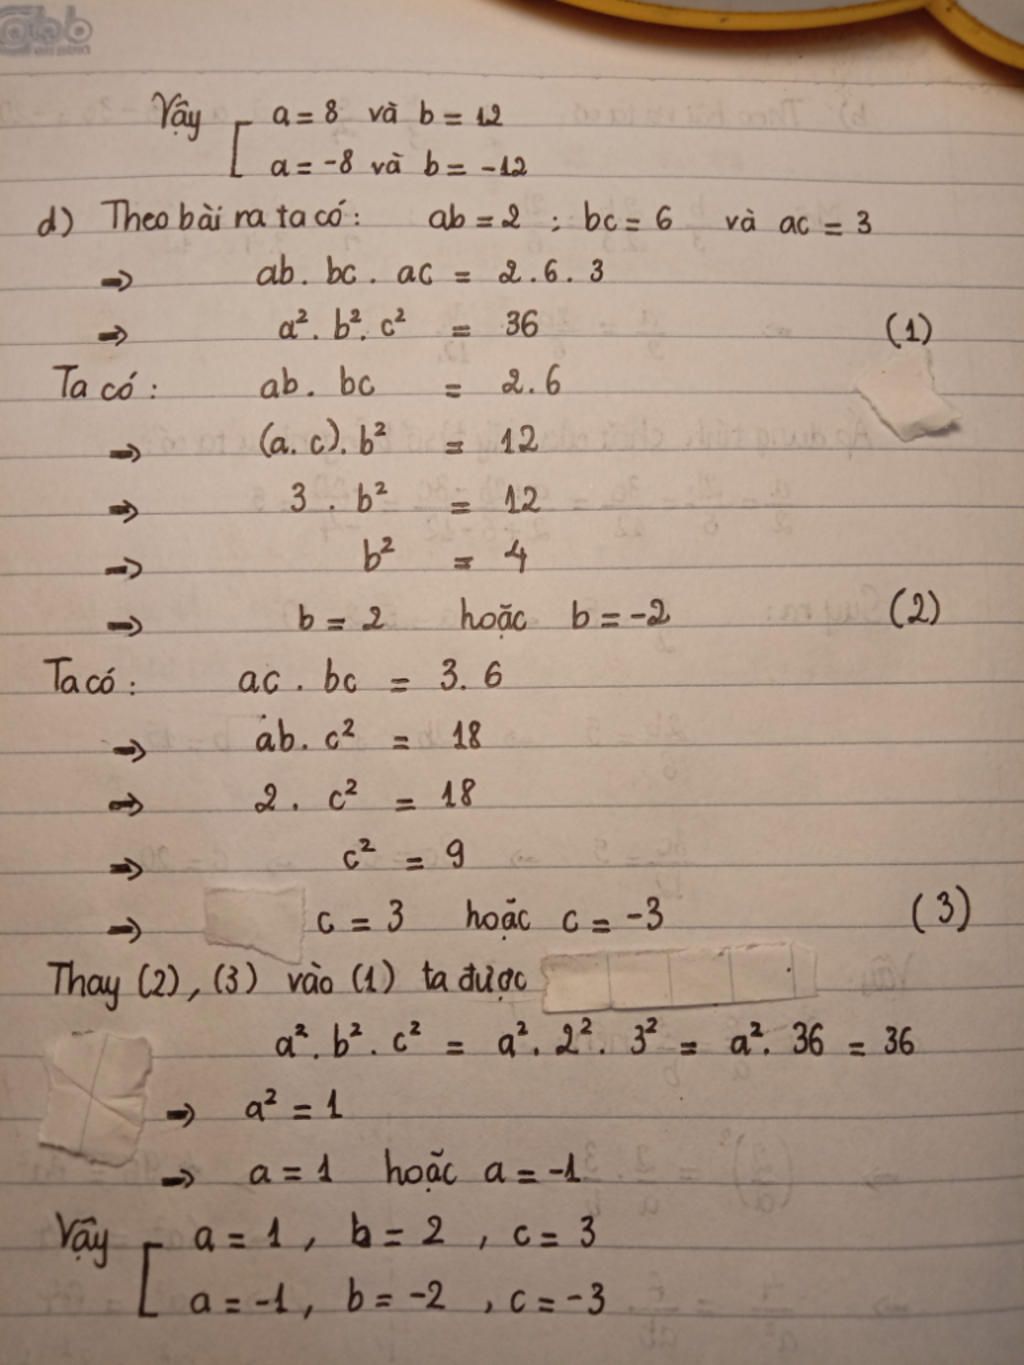 Vậy [ a = 8 và b = 12
a = -8 và b = -12
d) Theo bài ra ta có: ab = 2 ; bc = 6 và ac = 3
=> ab . bc . ac = 2 . 6 . 3
=> a² . b² . c² = 36 (1)
Ta có: ab . bc = 2 . 6
=> (a . c) . b² = 12
=> 3 . b² = 12
=> b² = 4
=> b = 2 hoặc b = -2 (2)
Ta có: ac . bc = 3 . 6
=> ab . c² = 18
=> 2 . c² = 18
=> c² = 9
=> c = 3 hoặc c = -3 (3)
Thay (2), (3) vào (1) ta được
a² . b² . c² = a² . 2² . 3² = a² . 36 = 36
=> a² = 1
=> a = 1 hoặc a = -1
Vậy [ a = 1 , b = 2 , c = 3
a = -1 , b = -2 , c = -3